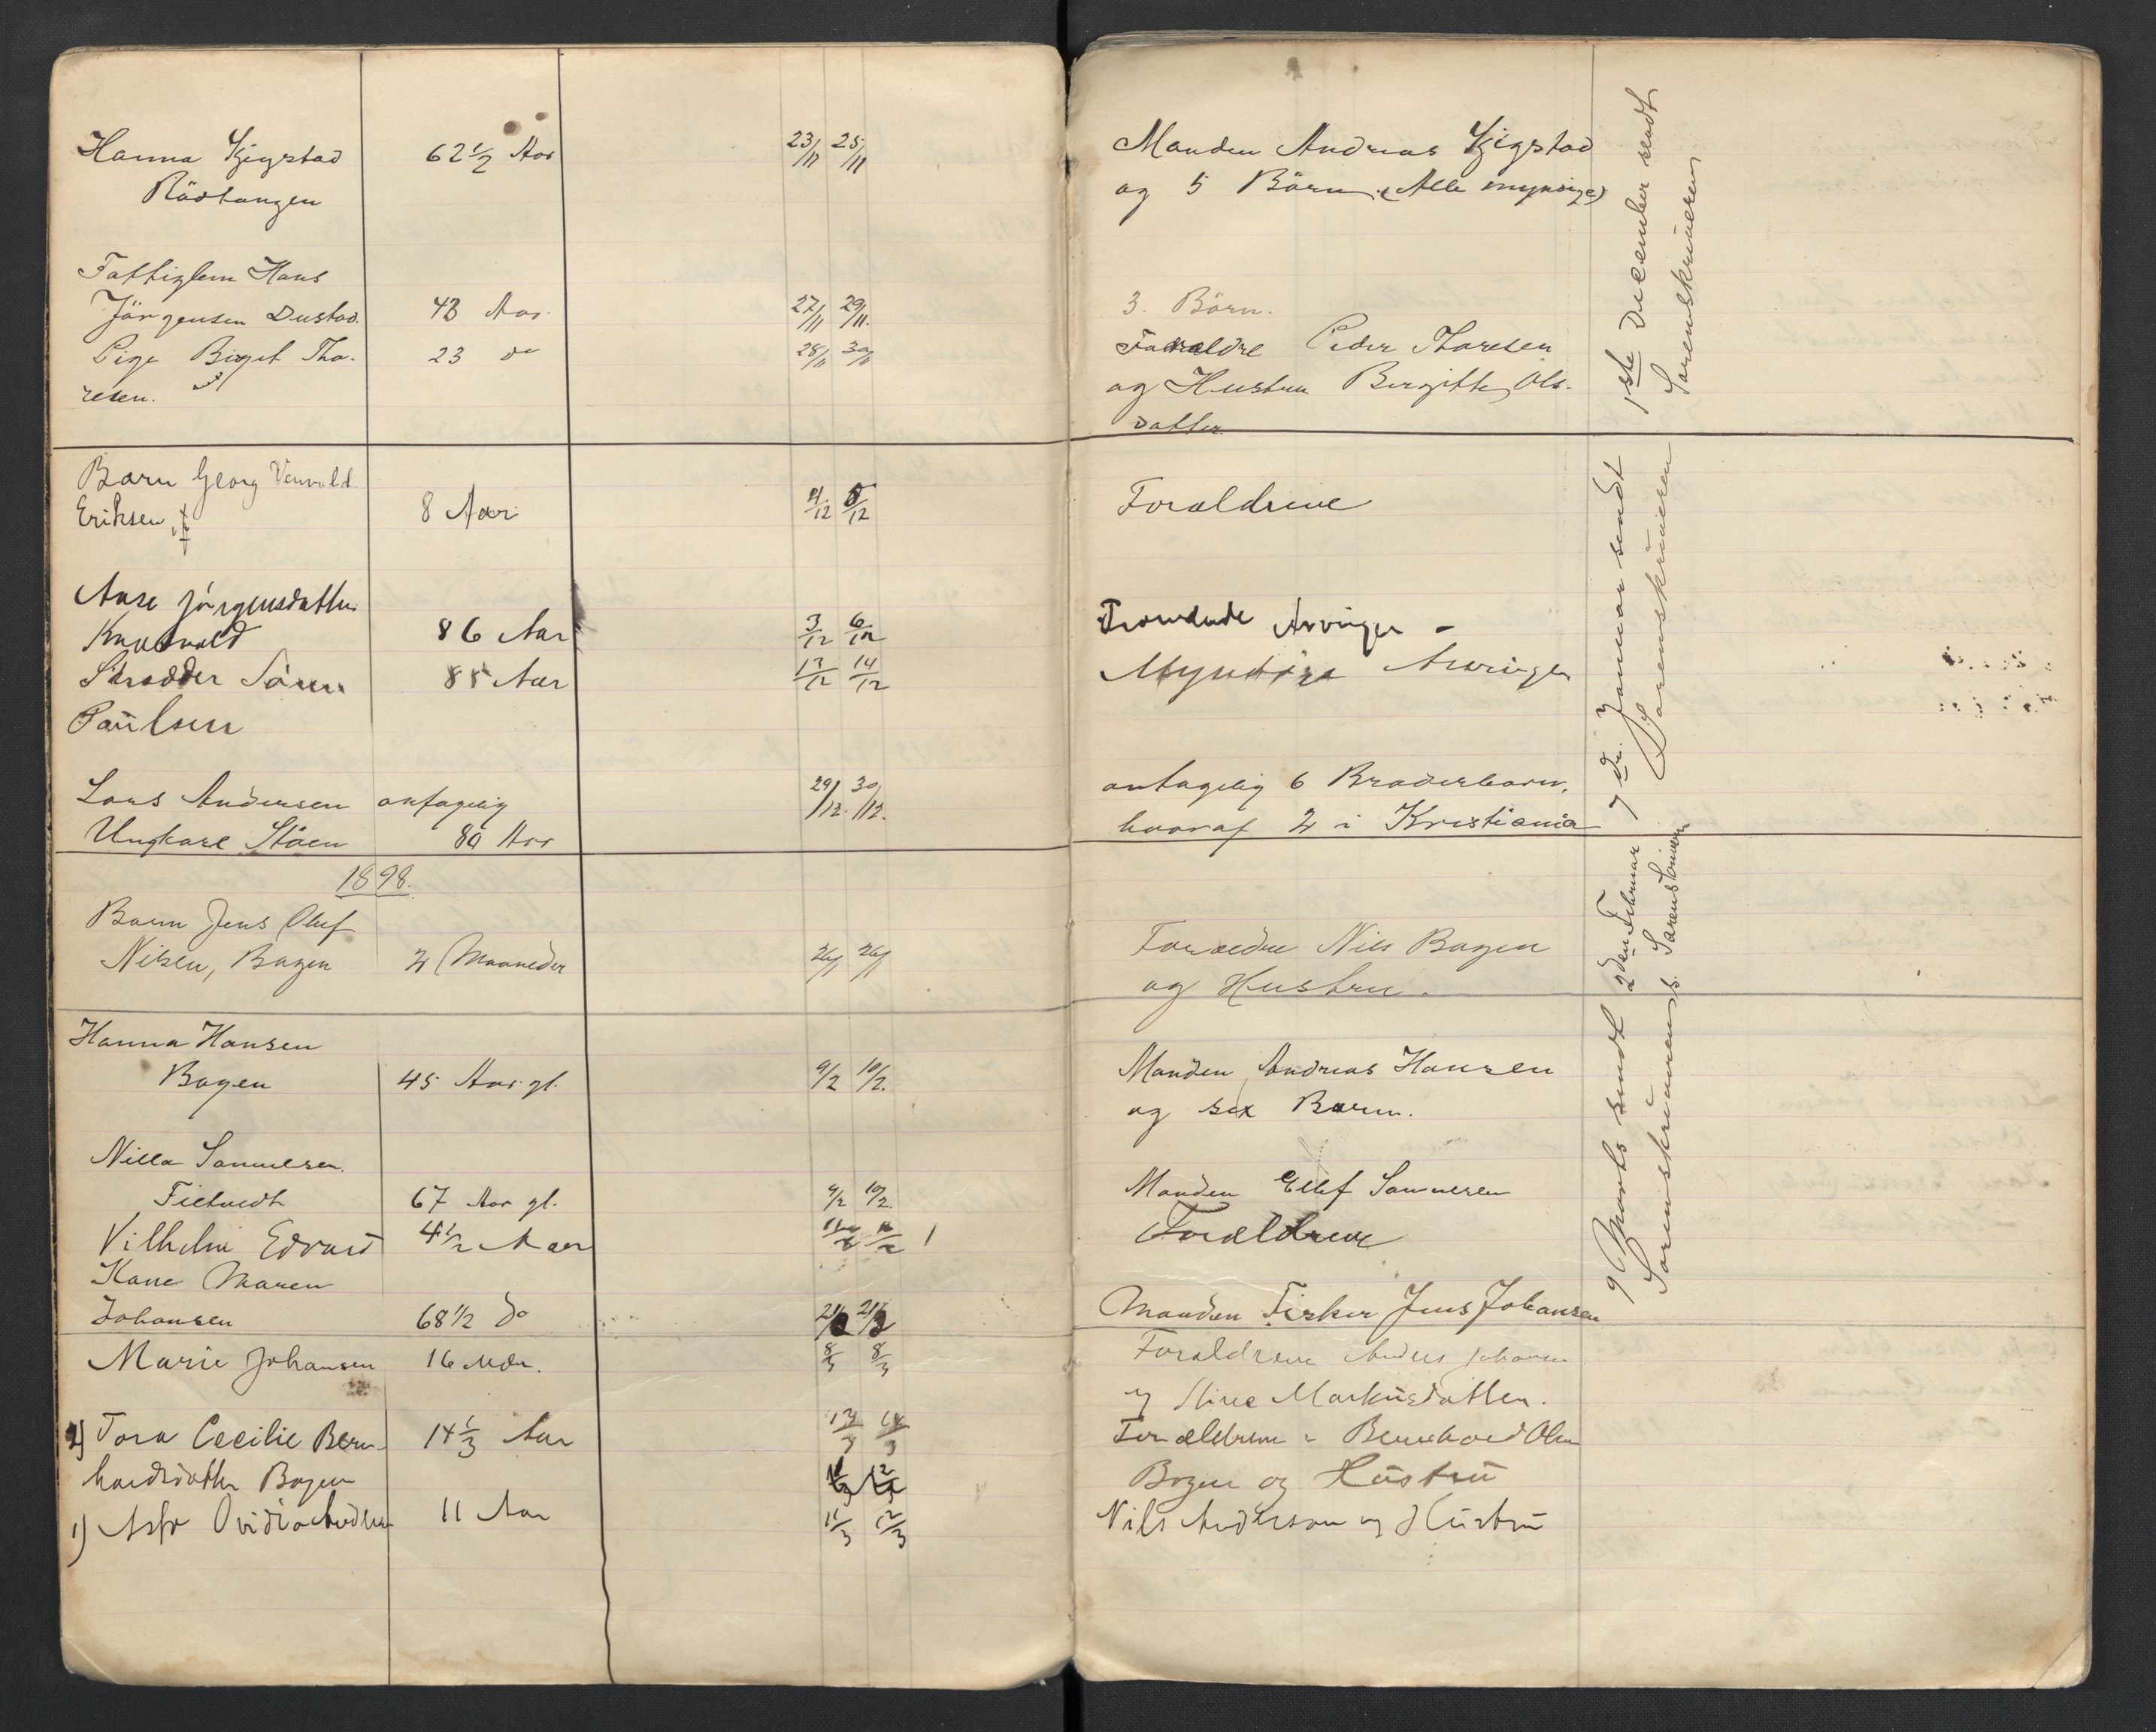 Hanna Kjigstad 62 1/2 Aar 23/11 25/11 Manden Andreas Kjigstad
Rödtangen og 5 Börn (Alle myndige)
Fattiglem Hans
Jörgensen Dustad. 43 Aar. 27/11 29/11. 3. Börn.
Pige Birgit Tho- 23 do 28/11 30/11 Forældre Peder Thoresen
resen. og Hustru Birgitte Ols-
datter
1ste December sendt
Sorenskriveren
Barn Georg
Eriksen 8 Aar 4/12 5/12 Foraldrene
Anse Jörgensdatter
86 Aar 3/12 6/12 Arvinger -
Skrædder Sören 85 Aar 13/12 14/12 Myndige Arvinger
Paulsen
Lars Andersen antagelig 29/12. 30/12. antagelig 6 Broderbarn,
Ungkarl Stöen 80 Aar hvoraf 2 i Kristiania
7de Januar sendt
Sorenskriveren
1898.
Barn Jens Oluf Foraeldre Nils Bogen
Nilsen, Bogen 2 Maaneder 26/1 26/1 og Hustru.
2den Februar
s. Sorenskriveren
Hanna Hansen Manden Andreas Hansen
Bogen 45 Aar gl. 9/2 10/2. og sex Barn.
Nilla Samuelsen.
Tietvedt 67 Aar gl. 9/2 10/2. Manden Ellef Samuelsen
Vilhelm Edvard 4 1/2 Aar Forældrene
Kone Maren
Johansen 68 1/2 do 21/2 21/2 Manden Fisker Jens Johansen
9 Marts sendt
Sorenskriveren
Marie Johansen 16 Mdr. 8/3 8/3 Foraldrene Anders Johansen
og Stine Markusdatter.
2) Tora Cecilie Bern- 14 1/3 Aar 13/3 14/3 Forældrene Bernhard Olsen
hardsdatter Bogen Bogen og Hustru
1) Ovidia Andersen 11 Aar 11/3 12/3 Nils Anderson og Hustru